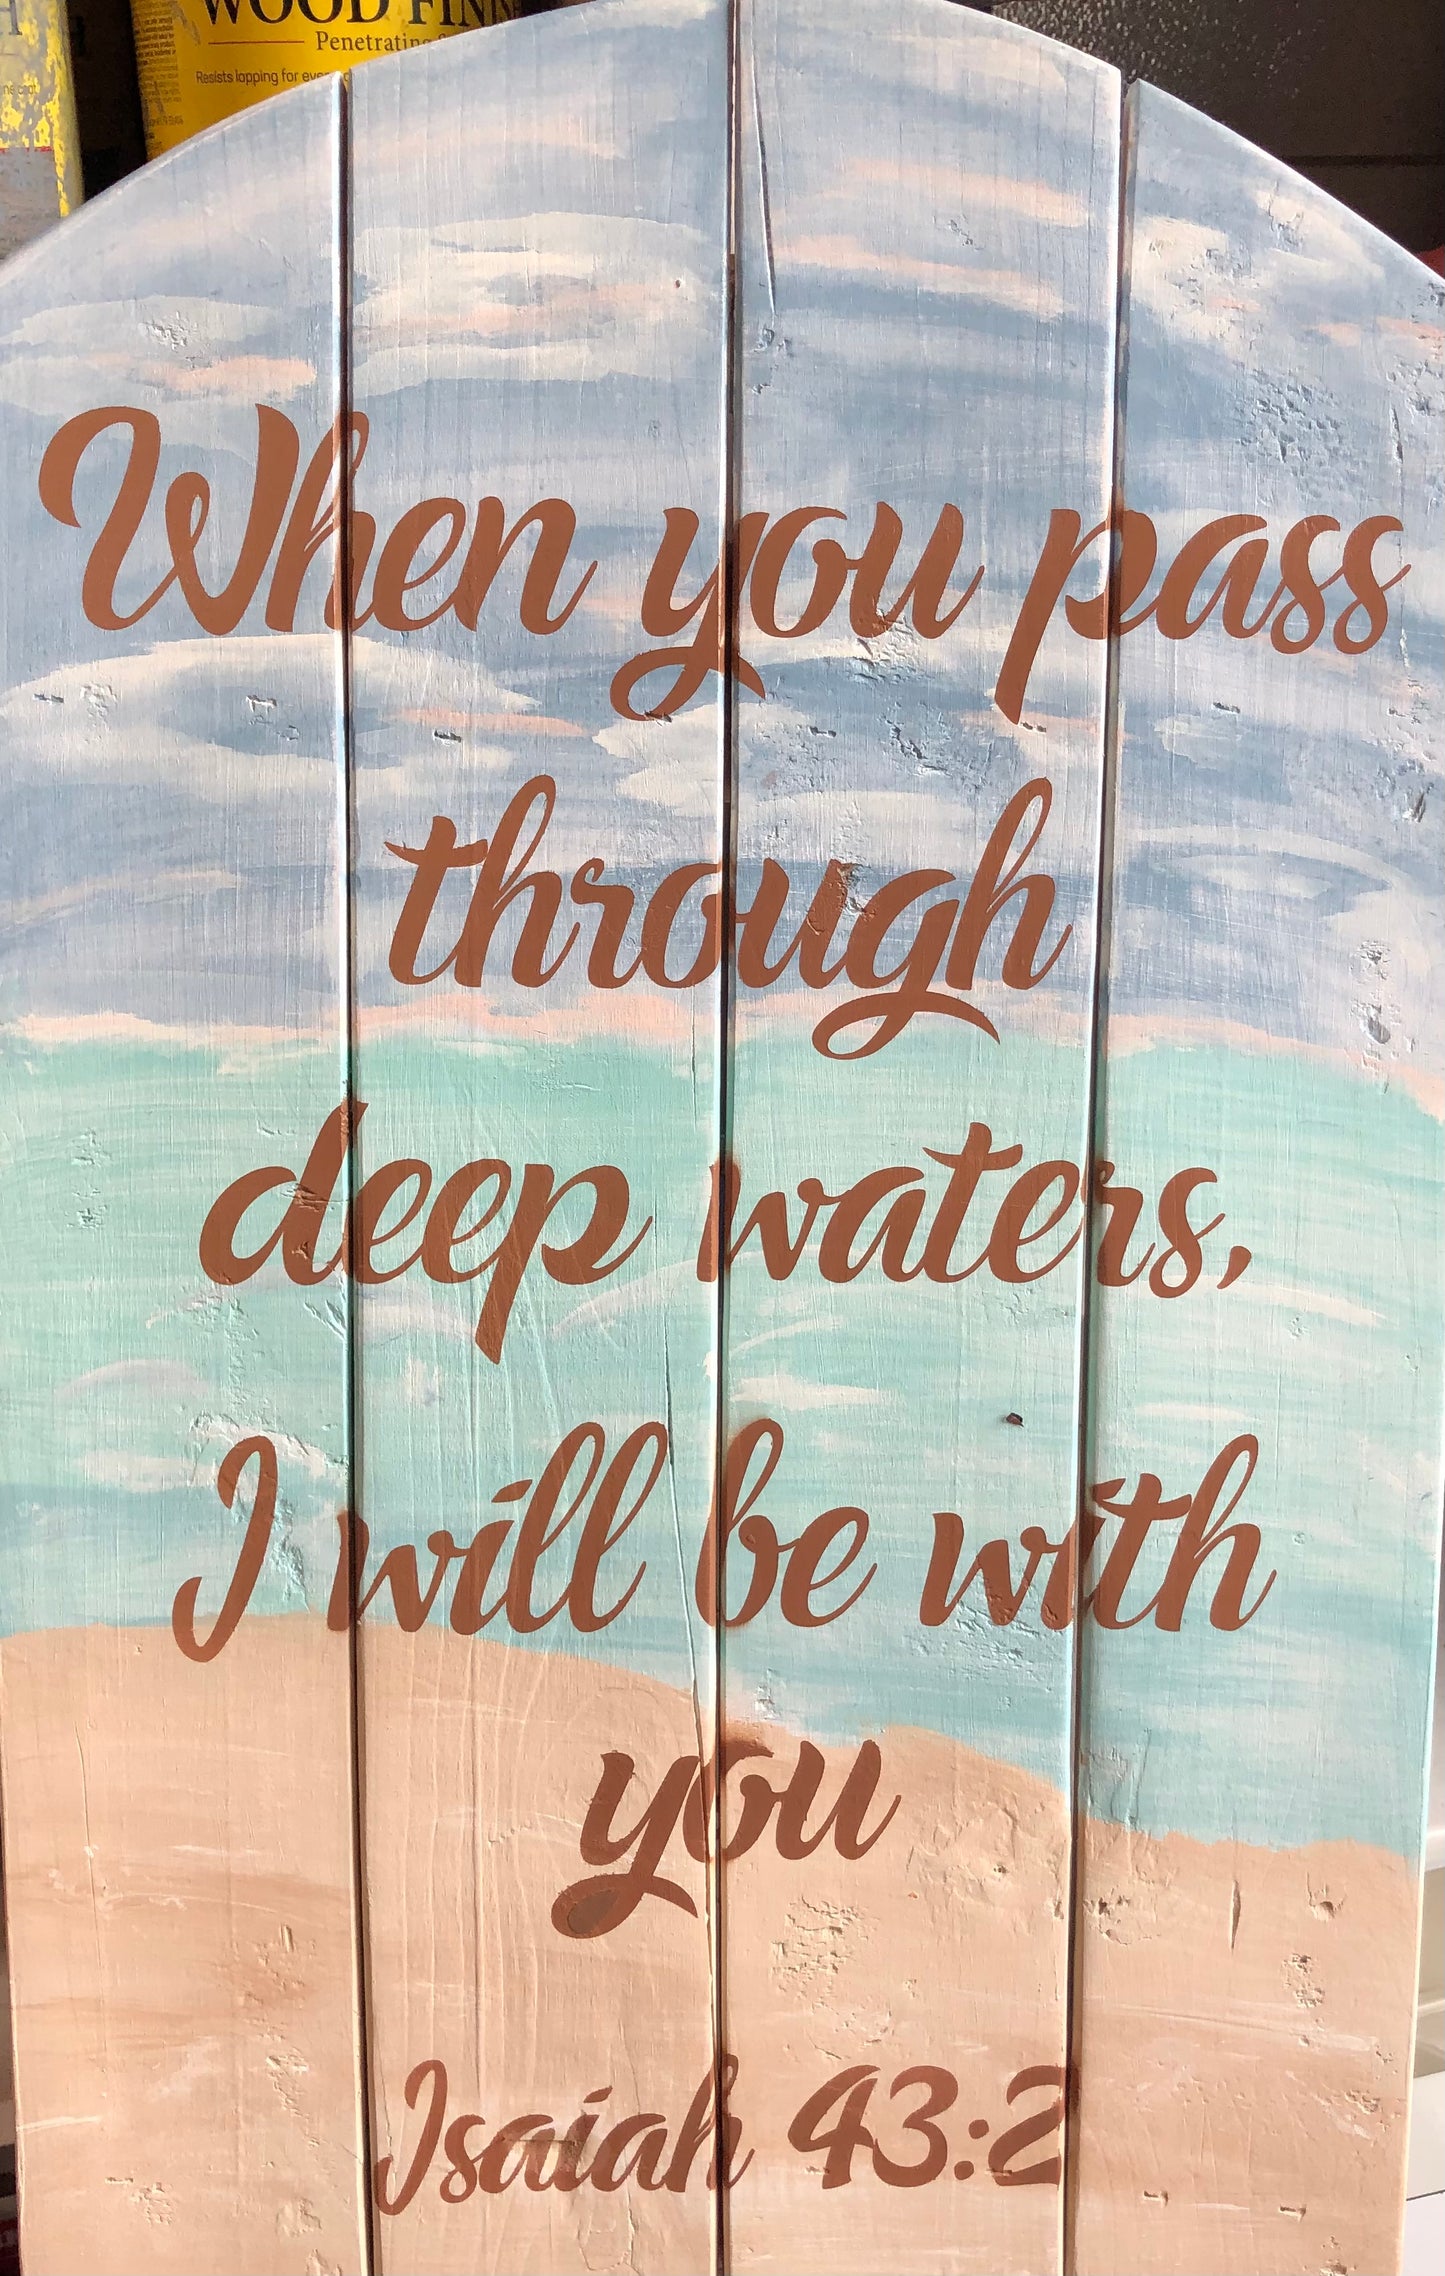 WOOD FINIS
Penetrating
Resists lapping for even
When you pass
through
deep waters,
I will be with
you
Isaiah 43:2